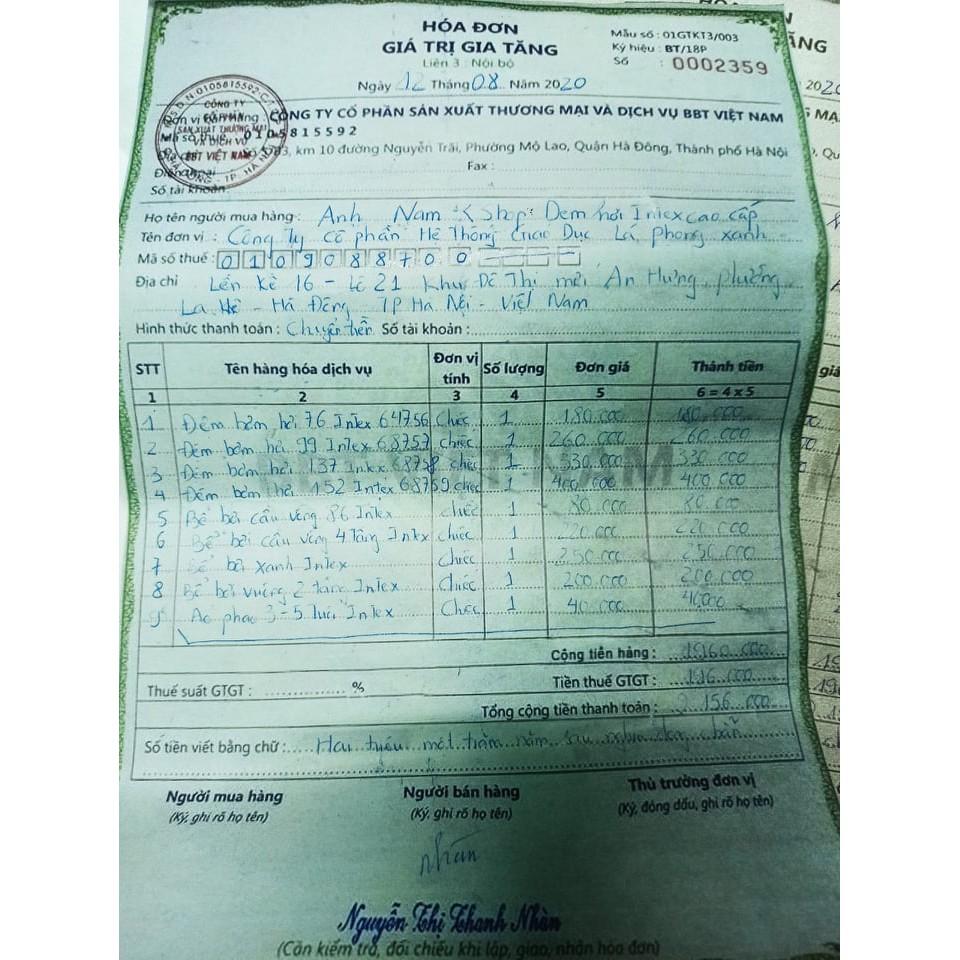 HÓA ĐƠN
GIÁ TRỊ GIA TĂNG
Liên 3 : Nội bộ
Ngày 12 Tháng 08 Năm 2020
Mẫu số : 01GTKT3/003
Ký hiệu : BT/18P
Số : 0002359
Đơn vị bán hàng : CÔNG TY CỔ PHẦN SẢN XUẤT THƯƠNG MẠI VÀ DỊCH VỤ BBT VIỆT NAM
Mã số thuế : 0105815592
km 10 đường Nguyễn Trãi, Phường Mộ Lao, Quận Hà Đông, Thành phố Hà Nội
Điện thoại Fax :
Số tài khoản:
Họ tên người mua hàng : Anh Nam Shop: Đệm hơi Intex cao cấp
Tên đơn vị : Công Ty cổ phần Hệ Thống Giáo Dục Lá phong xanh
Mã số thuế : 0109088700
Địa chỉ Liền kề 16 - Lô 21 Khu Đô Thị mới An Hưng, phường
La Khê - Hà Đông - TP Hà Nội - Việt Nam
Hình thức thanh toán : Chuyển tiền Số tài khoản :
STT Tên hàng hóa dịch vụ Đơn vị tính Số lượng Đơn giá Thành tiền
1 2 3 4 5 6 = 4 x 5
1 Đệm bơm hơi 76 Intex 64756 Chiếc 1 180.000 180.000
2 Đệm bơm hơi 99 Intex 68757 chiếc 1 260.000 260.000
3 Đệm bơm hơi 137 Intex 68758 chiếc 1 330.000 330.000
4 Đệm bơm hơi 152 Intex 68759 chiếc 1 400.000 400.000
5 Bể bơi cầu vồng 86 Intex chiếc 1 80.000 80.000
6 Bể bơi cầu vồng 4 tầng Intex chiếc 1 220.000 220.000
7 Bể bơi xanh Intex Chiếc 1 250.000 250.000
8 Bể bơi vuông 2 tầng Intex Chiếc 1 200.000 200.000
9 Áo phao 3-5 tuổi Intex Chiếc 1 40.000 40.000
Cộng tiền hàng : 1.960.000
Thuế suất GTGT : % Tiền thuế GTGT : 196.000
Tổng cộng tiền thanh toán : 2.156.000
Số tiền viết bằng chữ : Hai triệu một trăm năm sáu nghìn đồng chẵn
Người mua hàng Người bán hàng Thủ trưởng đơn vị
(Ký, ghi rõ họ tên) (Ký, ghi rõ họ tên) (Ký, đóng dấu, ghi rõ họ tên)
Nhàn
Nguyễn Thị Thanh Nhàn
(Cần kiểm tra, đối chiếu khi lập, giao, nhận hóa đơn)